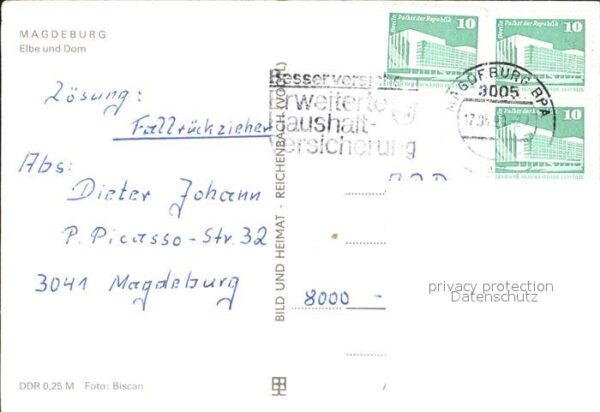 MAGDEBURG
Elbe und Dom
Berlin Palast der Republik 10
Berlin Palast der Republik 10
10
Besser versichern
Erweiterte
Haushalt-
versicherung
MAGDEBURG BPA
3005
Lösung:
Fallrückzieher
Abs:
Dieter Johann
P. Picasso-Str. 32
3041 Magdeburg
BILD UND HEIMAT · REICHENBACH (VOGTL)
8000 -
privacy protection
Datenschutz
DDR 0,25 M Foto: Biscan